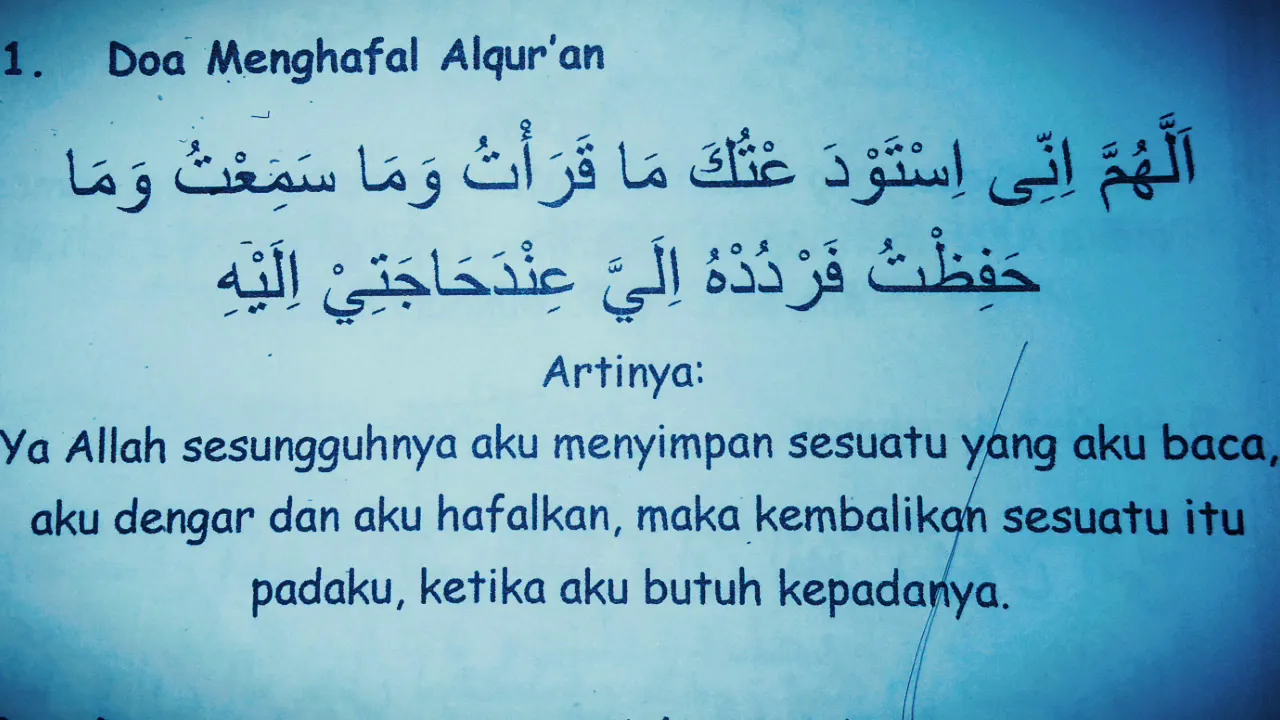 1. Doa Menghafal Alqur'an
اَللَّهُمَّ اِنِّى اِسْتَوْدَ عْتُكَ مَا قَرَأْتُ وَمَا سَمِعْتُ وَمَا
حَفِظْتُ فَرْدُدْهُ اِلَيَّ عِنْدَحَاجَتِيْ اِلَيْهِ
Artinya:
Ya Allah sesungguhnya aku menyimpan sesuatu yang aku baca,
aku dengar dan aku hafalkan, maka kembalikan sesuatu itu
padaku, ketika aku butuh kepadanya.